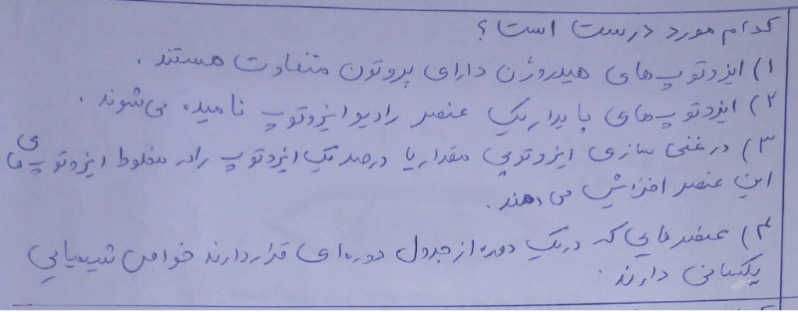 کدام مورد درست است؟
۱) ایزوتوپ‌های هیدروژن دارای پروتون متفاوت هستند.
۲) ایزوتوپ‌های پایدار یک عنصر رادیوایزوتوپ نامیده می‌شوند.
۳) در غنی سازی ایزوتوپی مقدار یا درصد یک ایزوتوپ را در مخلوط ایزوتوپ‌های
این عنصر افزایش می دهند.
۴) عنصرهایی که در یک دوره از جدول دوره‌ای قرار دارند خواص شیمیایی
یکسانی دارند.